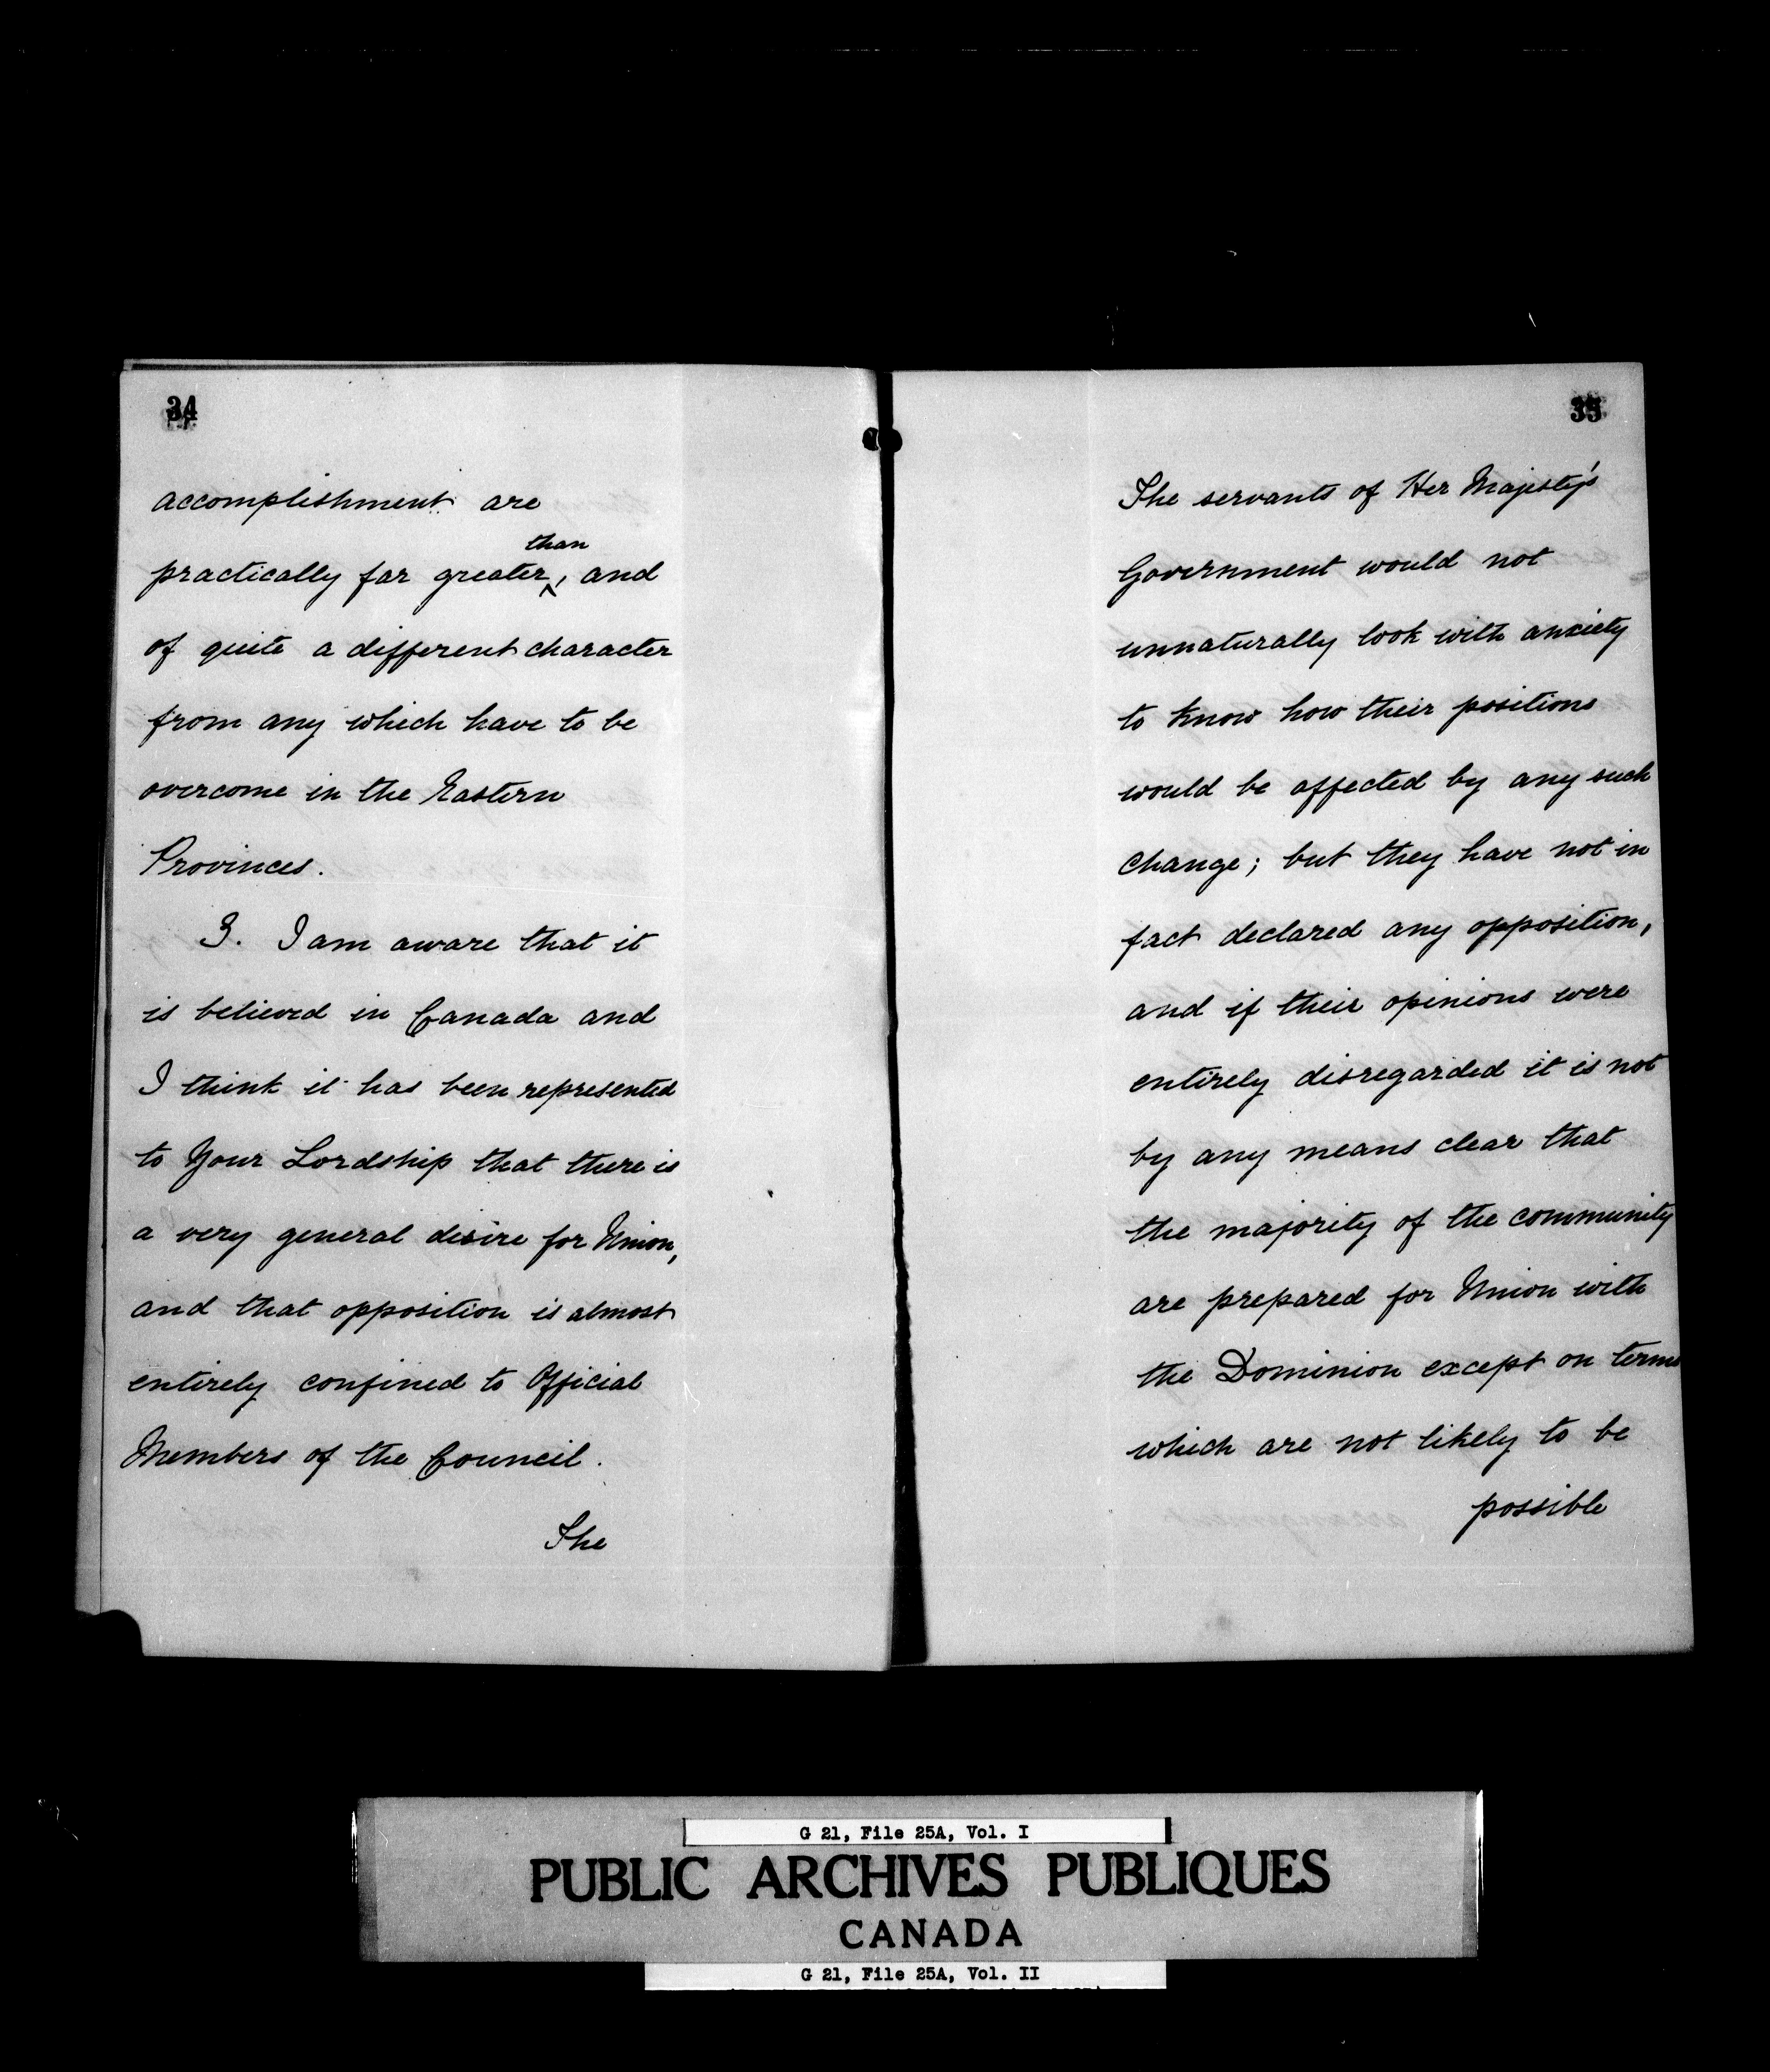 34
accomplishment are
than
practically far greater, and
of quite a different character
from any which have to be
overcome in the Eastern
Provinces.
3. I am aware that it
is believed in Canada and
I think it has been represented
to Your Lordship that there is
a very general desire for Union,
and that opposition is almost
entirely confined to Official
Members of the Council.
The
35
The servants of Her Majesty's
Government would not
unnaturally look with anxiety
to know how their positions
would be affected by any such
change; but they have not in
fact declared any opposition,
and if their opinions were
entirely disregarded it is not
by any means clear that
the majority of the community
are prepared for Union with
the Dominion except on terms
which are not likely to be
possible
G 21, File 25A, Vol. I
PUBLIC ARCHIVES PUBLIQUES
CANADA
G 21, File 25A, Vol. II